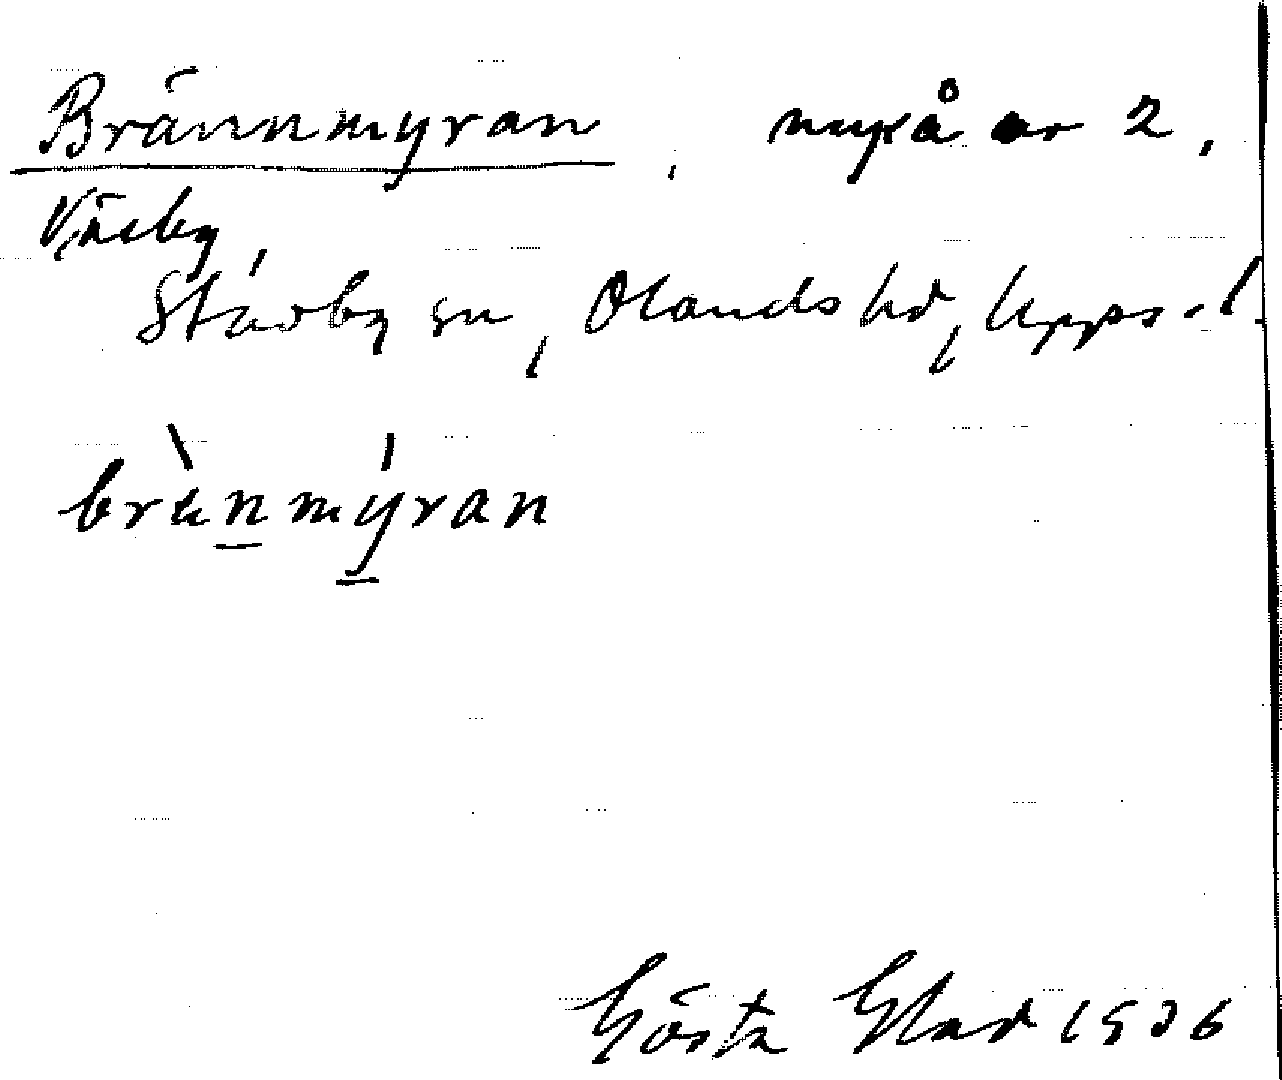 Brännmyran, myrå nr 2,
Väsby,
Stavby sn, Olands hd, Upps. l.
brànmýran
Gösta Glad 1936